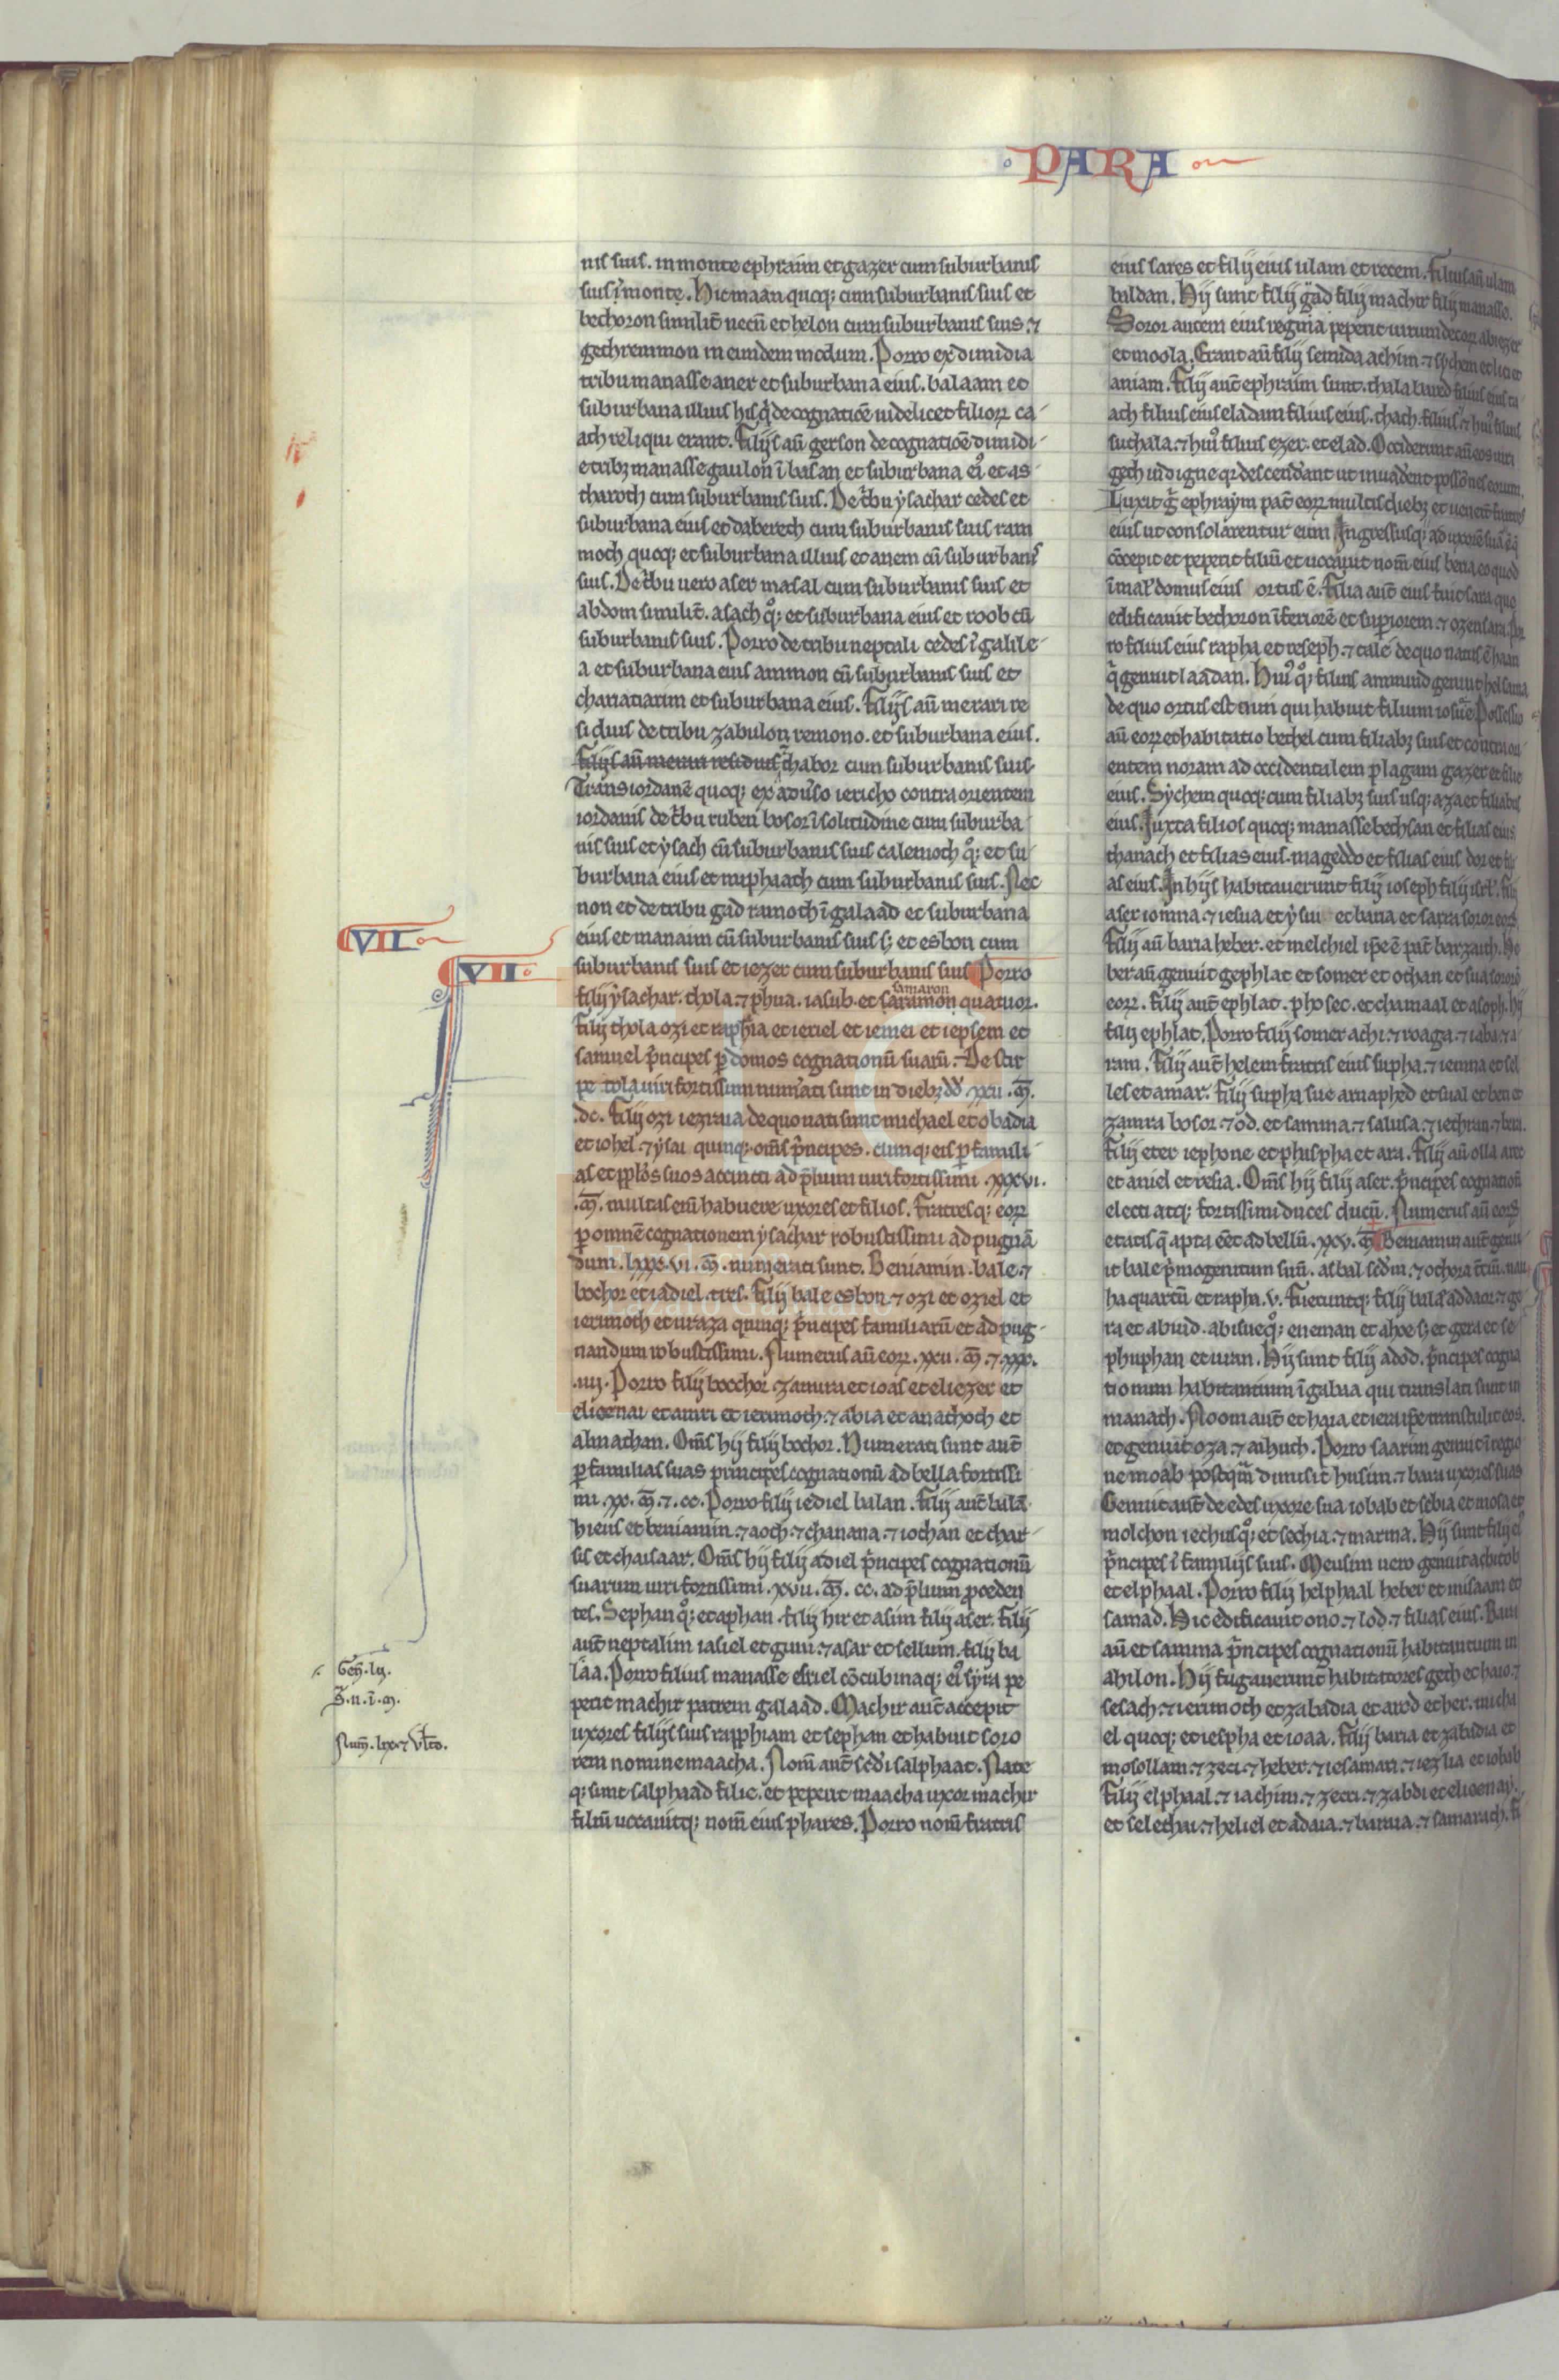 PARA
nis suis. in monte ephraim et gazer cum suburbanis
suis ī monte. Hicmaan quoq; cum suburbanis suis et
bethoron similit̄ necn̄ et helon cum suburbanis suis. ⁊
gethremmon in eundem modum. Porro ex dimidia
tribu manasse aner et suburbana eius. balaam et
suburbana illius his q̄ de cognatiōe videlicet filioꝝ ca
ath reliqui erant. filijs aū gerson de cognatiōe dimidi
e tribꝫ manasse gaulon ī basan et suburbana ei⁹ et as
tharoth cum suburbanis suis. De t̄bu ysachar cedes et
suburbana eius et dabereth cum suburbanis suis ram
moth quoq; et suburbana illius et anem cū suburbanis
suis. De t̄bu uero aser masal cum suburbanis suis et
abdom similit̄. asach q͛; et suburbana eius et roob cū
suburbanis suis. Porro de tribu neptali cedes ī galile
a et suburbana eius ammon cū suburbanis suis et
chariatiarim et suburbana eius. filijs aū merari re
siduis de tribu zabulon remono. et suburbana eius.
filijs aū merari residuis thabor cum suburbanis suis
Trans iordanē quoq; ex aduso iericho contra orientem
iordanis de t̄bu ruben bosor ī solitudine cum suburba
nis suis et ysach cū suburbanis suis calemoth q͛; et su
burbana eius et miphaath cum suburbanis suis. Nec
non et de tribu gad ramoth ī galaad et suburbana
VII
eius et manaim cū suburbanis suis s; et esbon cum
VII
suburbanis suis et iezer cum suburbanis suis Porro
samaron
filij ysachar. thola. ⁊ phua. iasub. et saramon quatuor.
filij thola ozi et raphia et ieriel et iemei et iepsem et
samuel p̄ncipes ꝑ domos cognationū suarū. De stir
pe tola uiri fortissimi num̄ati sunt in diebꝫ dd̄ xxii. m̄.
.dc. filij ozi iezraia de quo nati sunt michael et obadia
et iohel. ⁊ ysai quinq; om̄s p̄ncipes. cumq; eis ꝑ famili
as et pplōs suos accincti ad p̄lium uiri fortissimi .xxxvi.
.m̄. multas eni habuere uxores et filios. fratresq; eoꝝ
ꝑ omnē cognationem ysachar robustissimi ad pugnā
dum. lxxx.vi. m̄. numerati sunt. Beniamin. bale. ⁊
bochor et iadiel. tres. filij bale esbon. ⁊ ozi et oziel et
ierimoth et uraza quinq; p̄ncipes familiarū et ad pug
nandum robustissimi. Numerus aū eoꝝ. xxii. m̄. ⁊ xxx.
.iiij. Porro filij bochor. zamira et ioas et eliezer et
elioenai et amri et ierimoth. ⁊ abia et anathoth et
almathan. Om̄s hij filij bochor. Numerati sunt aut̄
ꝑ familias suas principes cognationū ad bella fortissi
mi. xx. m̄. ⁊. cc. Porro filij iediel balan. filij aut̄ balā
hieus et beniamin. ⁊ aoth. ⁊ chanana. ⁊ iothan et thar
sis et thaisaar. Om̄s hij filij adiel p̄ncipes cognationū
suarum uiri fortissimi. xvii. m̄. cc. ad p̄lium ꝓceden
tes. Sephan q͛; et aphan. filij hir et asim filij aser. filij
aut̄ neptalim iasiel et guni. ⁊ asar et sellum. filij ba
Geñ. lij.
laa. Porro filius manasse esriel cōcubinaq; ei⁹ syra pe
perit machir patrem galaad. Machir aut̄ accepit
uxores filijs suis rapphiam et sephan et habuit soro
rem nomine maacha. Nom̄ aut̄ scd̄i salphaat. Nate
q; sunt salphaad filie. et peperit maacha uxor machir
filiū uocauitq; nom̄ eius phares. Porro nom̄ fratris
eius sares et filij eius ulam et recem. filius aū ulam
baldan. Hij sunt filij gad filij machir filij manasse.
Soror autem eius regina peperit
et moola. Erant aū filij semida achim. ⁊ sychem et
aniam. filij aut̄ ephraim sunt. thala bared filius eius
ath filius eius eladam filius eius. thath. filius ⁊ hui⁹ filius
suthala. ⁊ hui⁹ filius ezer. et elad. Occiderunt aū eos uiri
geth īdigne qr descenderant ut inuad̄ent possōnes eorum.
Luxit g̃ ephraym pat̄ eoꝝ multis diebꝫ et uenerūt fratres
eius ut consolarentur eum Ingressusq; ad uxorē suā q̄
cōcepit et peperit filiū et uocauit nom̄ eius beria eo quod
ī mal domus eius ortus ē. filia aut̄ eius fuit sara que
edificauit bethoron īferiorē et superiorem. ⁊ ozensara. Por
ro filius eius rapha et reseph. ⁊ tale de quo natus ē haan
q̄ genuit laadan. Hui⁹ q͛; filius ammiud genuit helisama
de quo ortus est nun qui habuit filium iosue. Possessio
aū eoꝝ et habitatio bethel cum filiabꝫ suis et contra ori
entem noram ad occidentalem plagam gazer et filie
eius. Sychem quoq; cum filiabꝫ suis usq; aza et filiabus
eius. Iuxta filios quoq; manasse bethsan et filias eius
thanach et filias eius. mageddo et filias eius dor et fili
as eius. In hijs habitauerunt filij ioseph filij isrl. filij
aser iomna. ⁊ iesua et ysui et baria et sara soror eoꝝ
filij aū baria heber. et melchiel ip̄e ē pat̄ barzaith. He
ber aū genuit gephlat et somer et othan et sua sororē
eoꝝ. filij aut̄ ephlat. phosec. et chamaal et asoph. hij
filij ephlat. Porro filij somer achi. ⁊ roaga. ⁊ iaba. ⁊ a
ram. filij aut̄ helem fratris eius supha. ⁊ iemna et sel
les et amar. filij supha sue arnaphed et sual et beri et
zamra bosor. ⁊ od. et samma. ⁊ salusa. ⁊ iethran. ⁊ bera.
filij eter iephone et phaspha et ara. filij aū olla aree
et aniel et resia. Om̄s hij filij aser. p̄ncipes cognationū
electi atq; fortissimi duces ducū. Numerus aū eoꝝ
etatis q̄ apta eēt ad bellū. xxv. m̄. Beniamin aut̄ genu
it bale p̄mogenitum suū. asbal scd̄m. ⁊ othora t̄tiū. nau
ha quartū et rapha. v. fueruntq; filij bala addaor. ⁊ ge
ra et abiud. abisue q͛; eneman et ahoe s; et gera et se
phuphan et uran. Hij sunt filij adod. p̄ncipes cogna
tionum habitantium ī gabua qui translati sunt in
manath. Noom aut̄ et haia et iera ip̄e transtulit eos.
et genuit oza. ⁊ aihuth. Porro saarim genuit ī regio
ne moab postqm̄ dimisit husim. ⁊ bara uxores suas
Genuit aut̄ de edes uxore sua iobab et sebia et mosa et
molchon iechusq͛; et sechia. ⁊ marma. Hij sunt filij ei⁹
p̄ncipes ī familijs suis. Meusim uero genuit achitob
et elphaal. Porro filij helphaal heber et misaam et
samad. Hic edificauit ono. ⁊ lod. ⁊ filias eius. Bara
aū et samma p̄ncipes cognationū habitantium in
ahilon. Hij fugauerunt habitatores geth et haio. ⁊
sesach. ⁊ ierimoth et zabadia et arod et her. micha
el quoq; et iespha et ioaa. filij baria et zabadia et
mosollam. ⁊ zeci. ⁊ heber. ⁊ iesaman. ⁊ iezlia et iobab
filij elphaal. ⁊ iachim. ⁊ zecri. ⁊ zabdi et elioenay.
et selethai. ⁊ heliel et adaia. ⁊ baraia. ⁊ samarath. fi